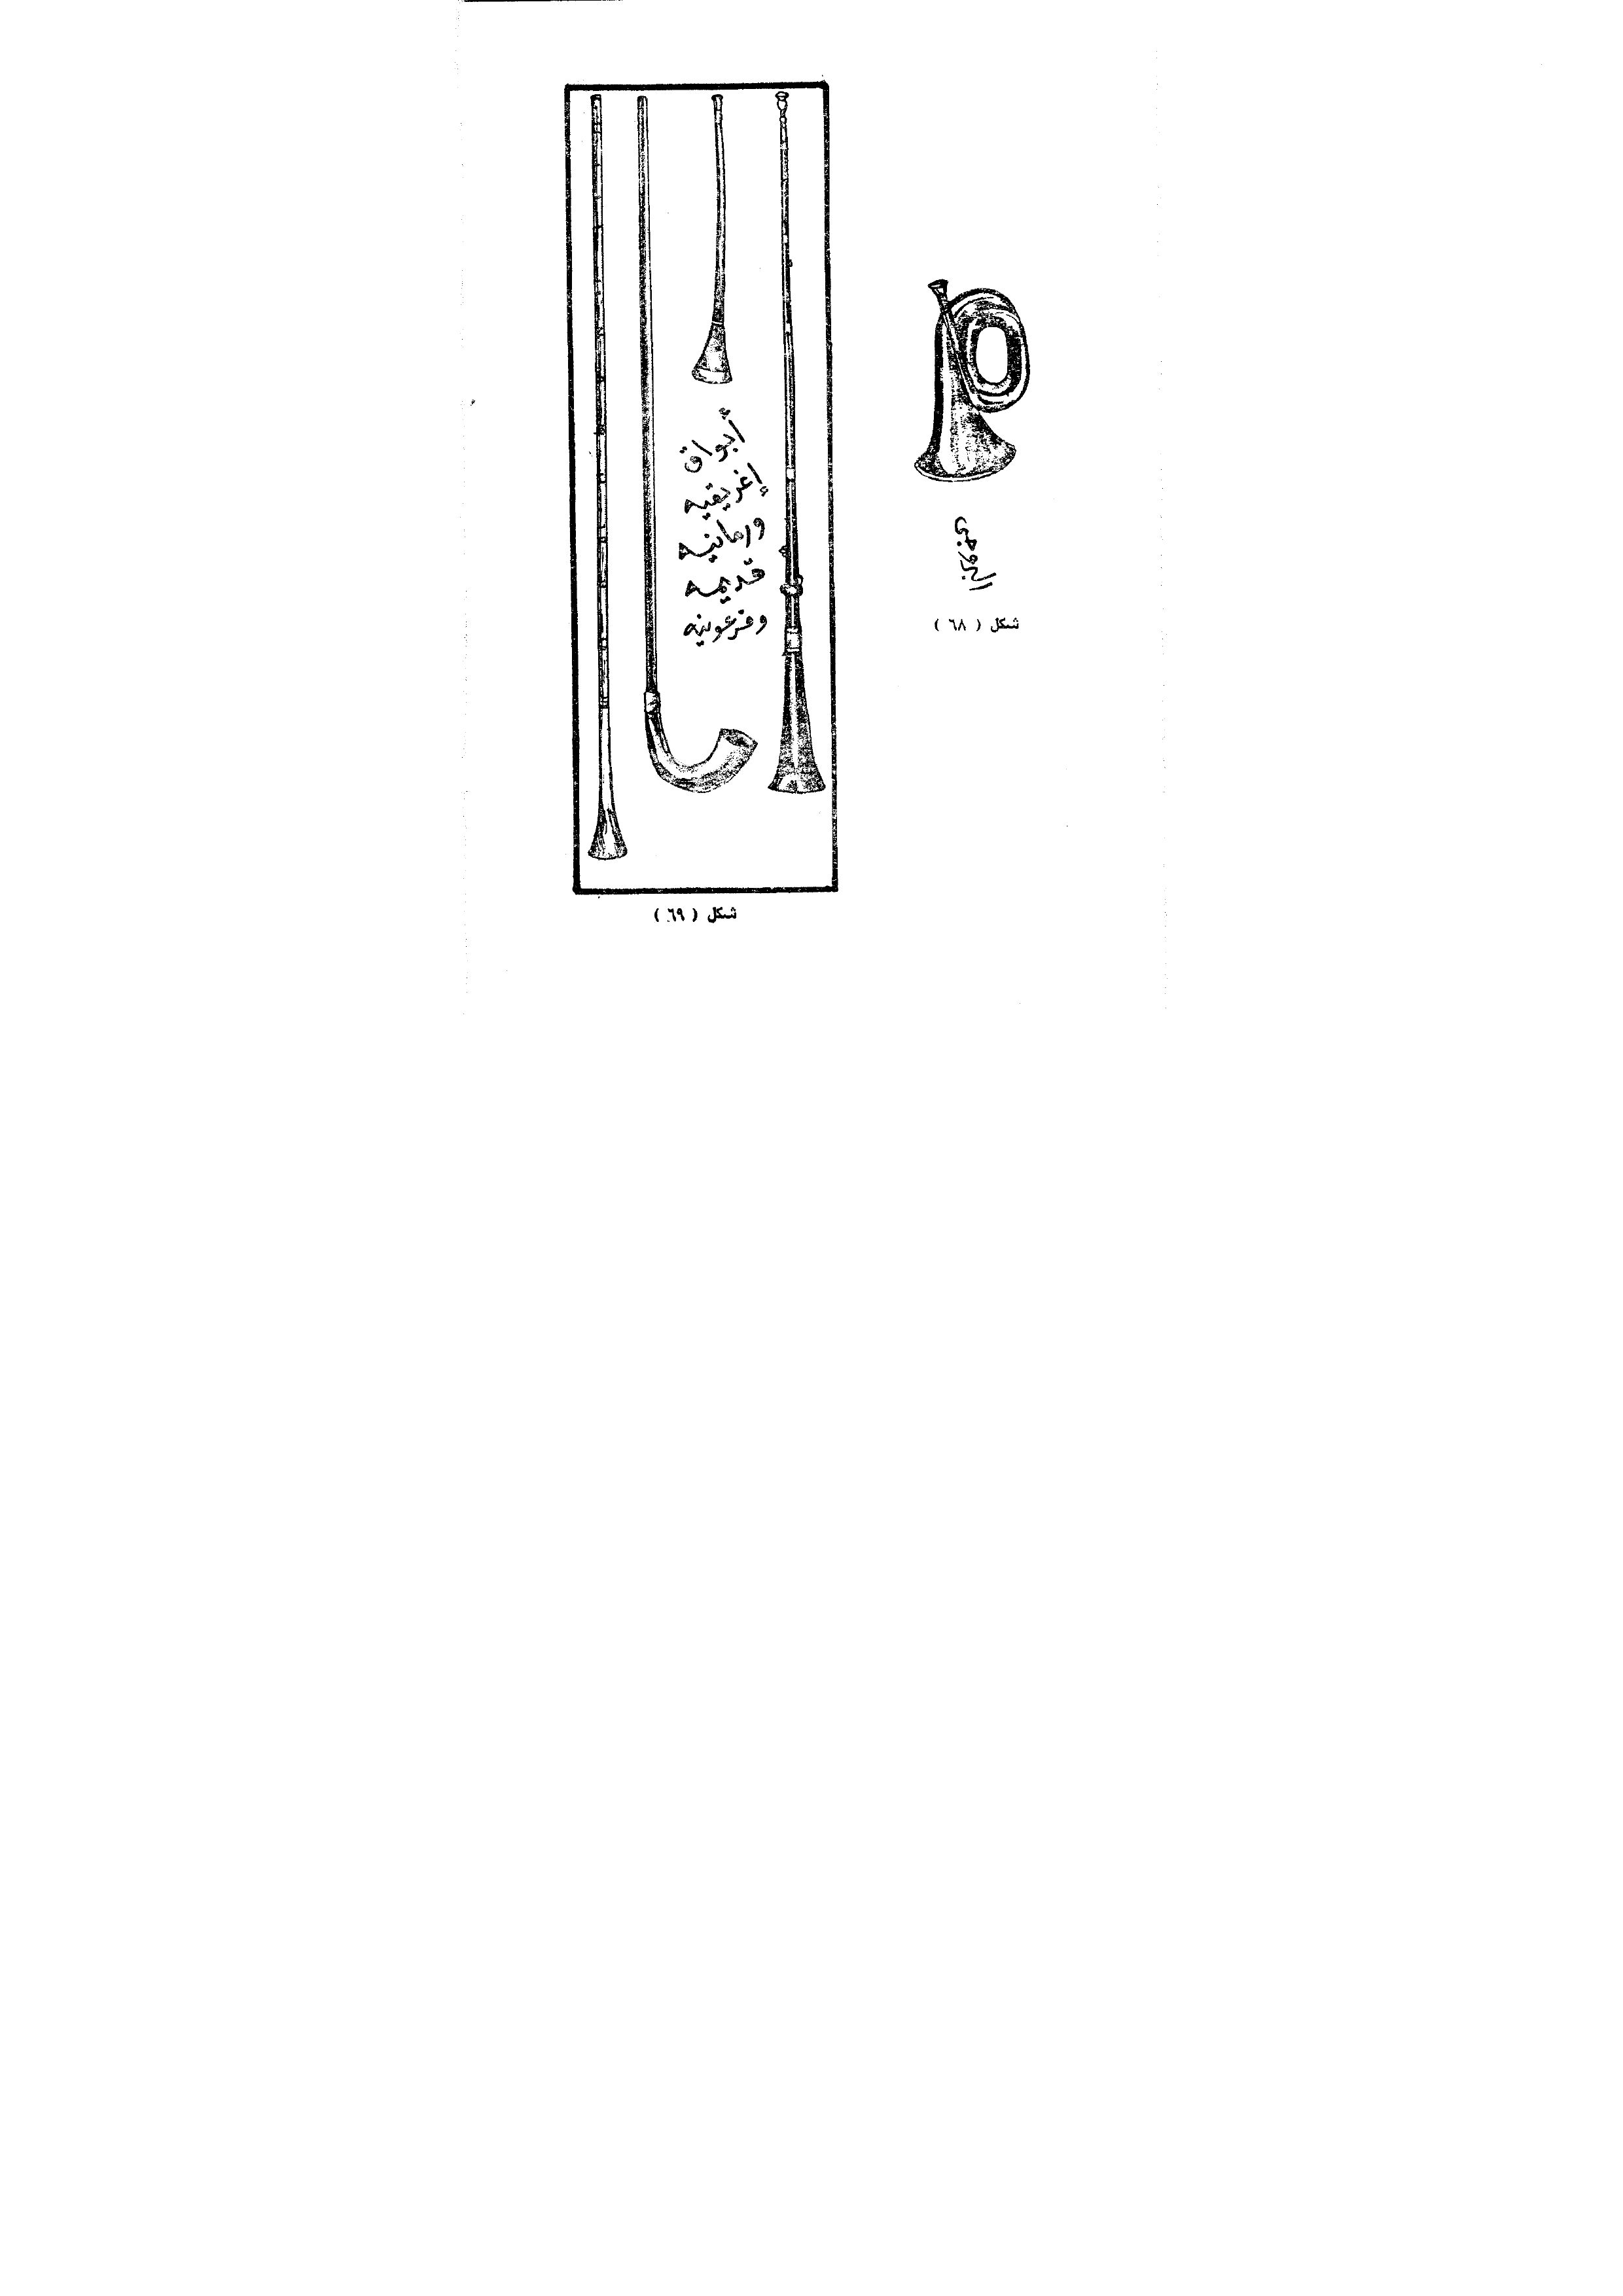 البروجى
شكل ( ٦٨ )
أبواق
إغريقيه
ورومانيه
قديمه
وفرعونيه
شكل ( ٦٩ )